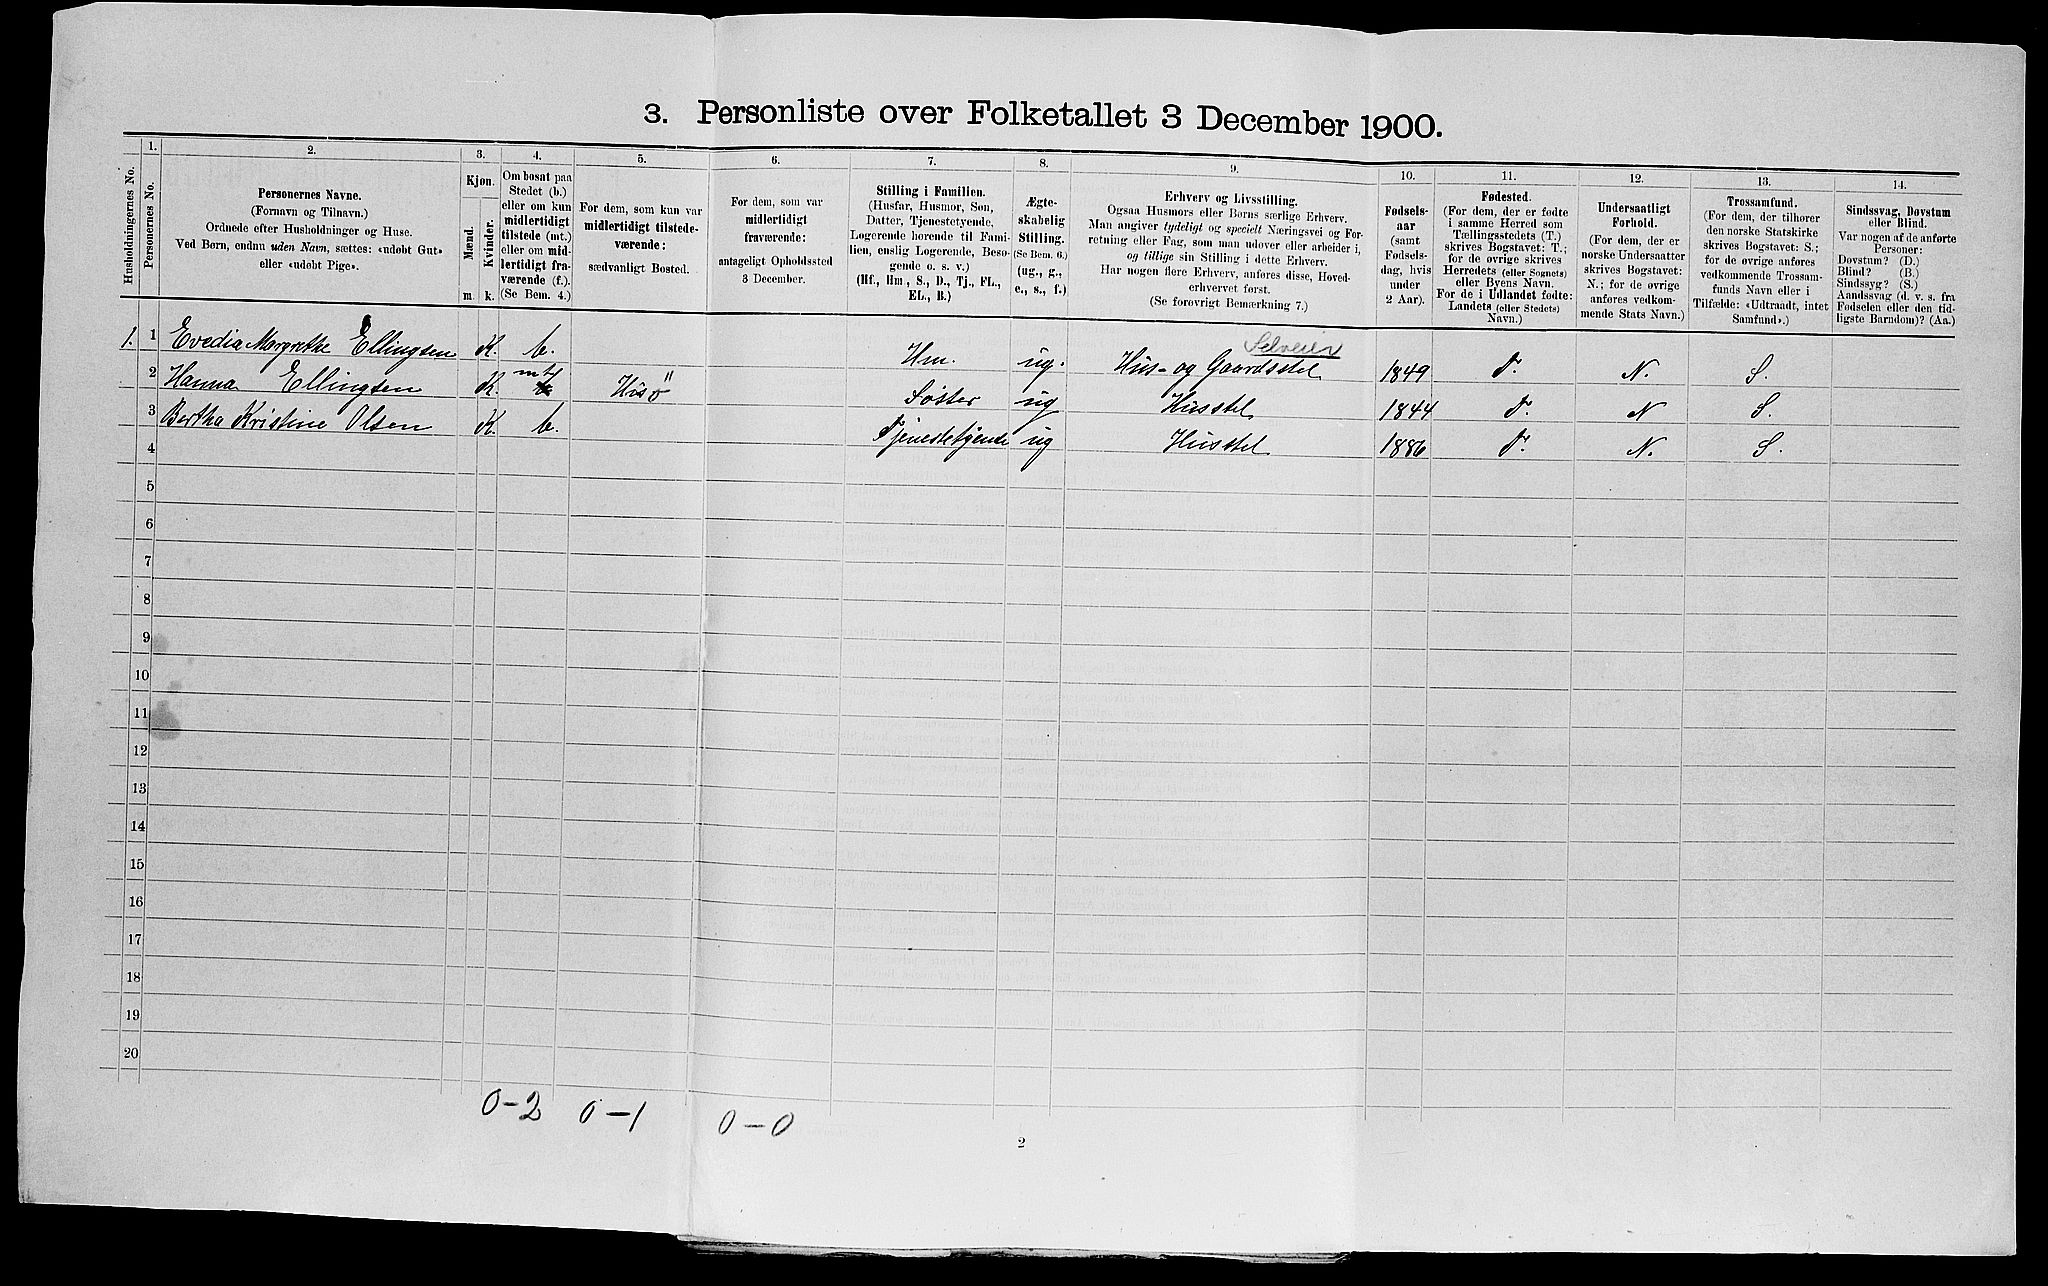 3. Personliste over Folketallet 3 December 1900.
1. 2. 3. 4. 5. 6. 7. 8. 9. 10. 11. 12. 13. 14.
Husholdningernes No.
Personernes No.
Personernes Navne.
(Fornavn og Tilnavn.)
Ordnede efter Husholdninger og Huse.
Ved Børn, endnu uden Navn, sættes: «udøbt Gut»
eller «udøbt Pige».
Kjøn.
Mænd.
Kvinder.
m. k.
Om bosat paa
Stedet (b.)
eller om kun
midlertidigt
tilstede (mt.)
eller om mid-
lertidigt fra-
værende (f.).
(Se Bem. 4.)
For dem, som kun var
midlertidigt tilstede-
værende:
sædvanligt Bosted.
For dem, som var
midlertidigt
fraværende:
antageligt Opholdssted
3 December.
Stilling i Familien.
(Husfar, Husmor, Søn,
Datter, Tjenestetyende,
Logerende hørende til Fami-
lien, enslig Logerende, Besø-
gende o. s. v.)
(Hf., Hm., S., D., Tj., FL.,
EL., B.)
Ægte-
skabelig
Stilling.
(Se Bem. 6.)
(ug., g.,
e., s., f.)
Erhverv og Livsstilling.
Ogsaa Husmors eller Børns særlige Erhverv.
Man angiver tydeligt og specielt Næringsvei og For-
retning eller Fag, som man udover eller arbeider i,
og tillige sin Stilling i dette Erhverv.
Har nogen flere Erhverv, anføres disse, Hoved-
erhvervet først.
(Se forøvrigt Bemærkning 7.)
Fødsels-
aar
(samt
Fødsels-
dag, hvis
under
2 Aar).
Fødested.
(For dem, der er fødte
i samme Herred som
Tællingsstedets (T.)
skrives Bogstavet: T.;
for de øvrige skrives
Herredets (eller Sognets)
eller Byens Navn.
For de i Udlandet fødte:
Landets (eller Stedets)
Navn.)
Undersaatligt
Forhold.
(For dem, der er
norske Undersaatter
skrives Bogstavet:
N.; for de øvrige
anføres vedkom-
mende Stats Navn.)
Trossamfund.
(For dem, der tilhører
den norske Statskirke
skrives Bogstavet: S.;
for de øvrige anføres
vedkommende Trossam-
funds Navn eller i
Tilfælde: «Udtraadt, intet
Samfund».)
Sindssvag, Døvstum
eller Blind.
Var nogen af de anførte
Personer:
Døvstum? (D.)
Blind? (B.)
Sindssyg? (S.)
Aandssvag (d. v. s. fra
Fødselen eller den tid-
ligste Barndom)? (Aa.)
Selveier
1. 1 Evedia Margrethe Ellingsen K. b. Hm. ug. Hus- og Gaardsstel 1849 T. N. S.
mt
2 Hanna Ellingsen K. Hisö Søster ug Husstel 1844 T. N S.
3 Bertha Kristine Olsen K. b. Tjenestetjende ug Husstel 1886 T. N. S.
4
5
6
7
8
9
10
11
12
13
14
15
16
17
18
19
20
0-2 0-1 0-0
2